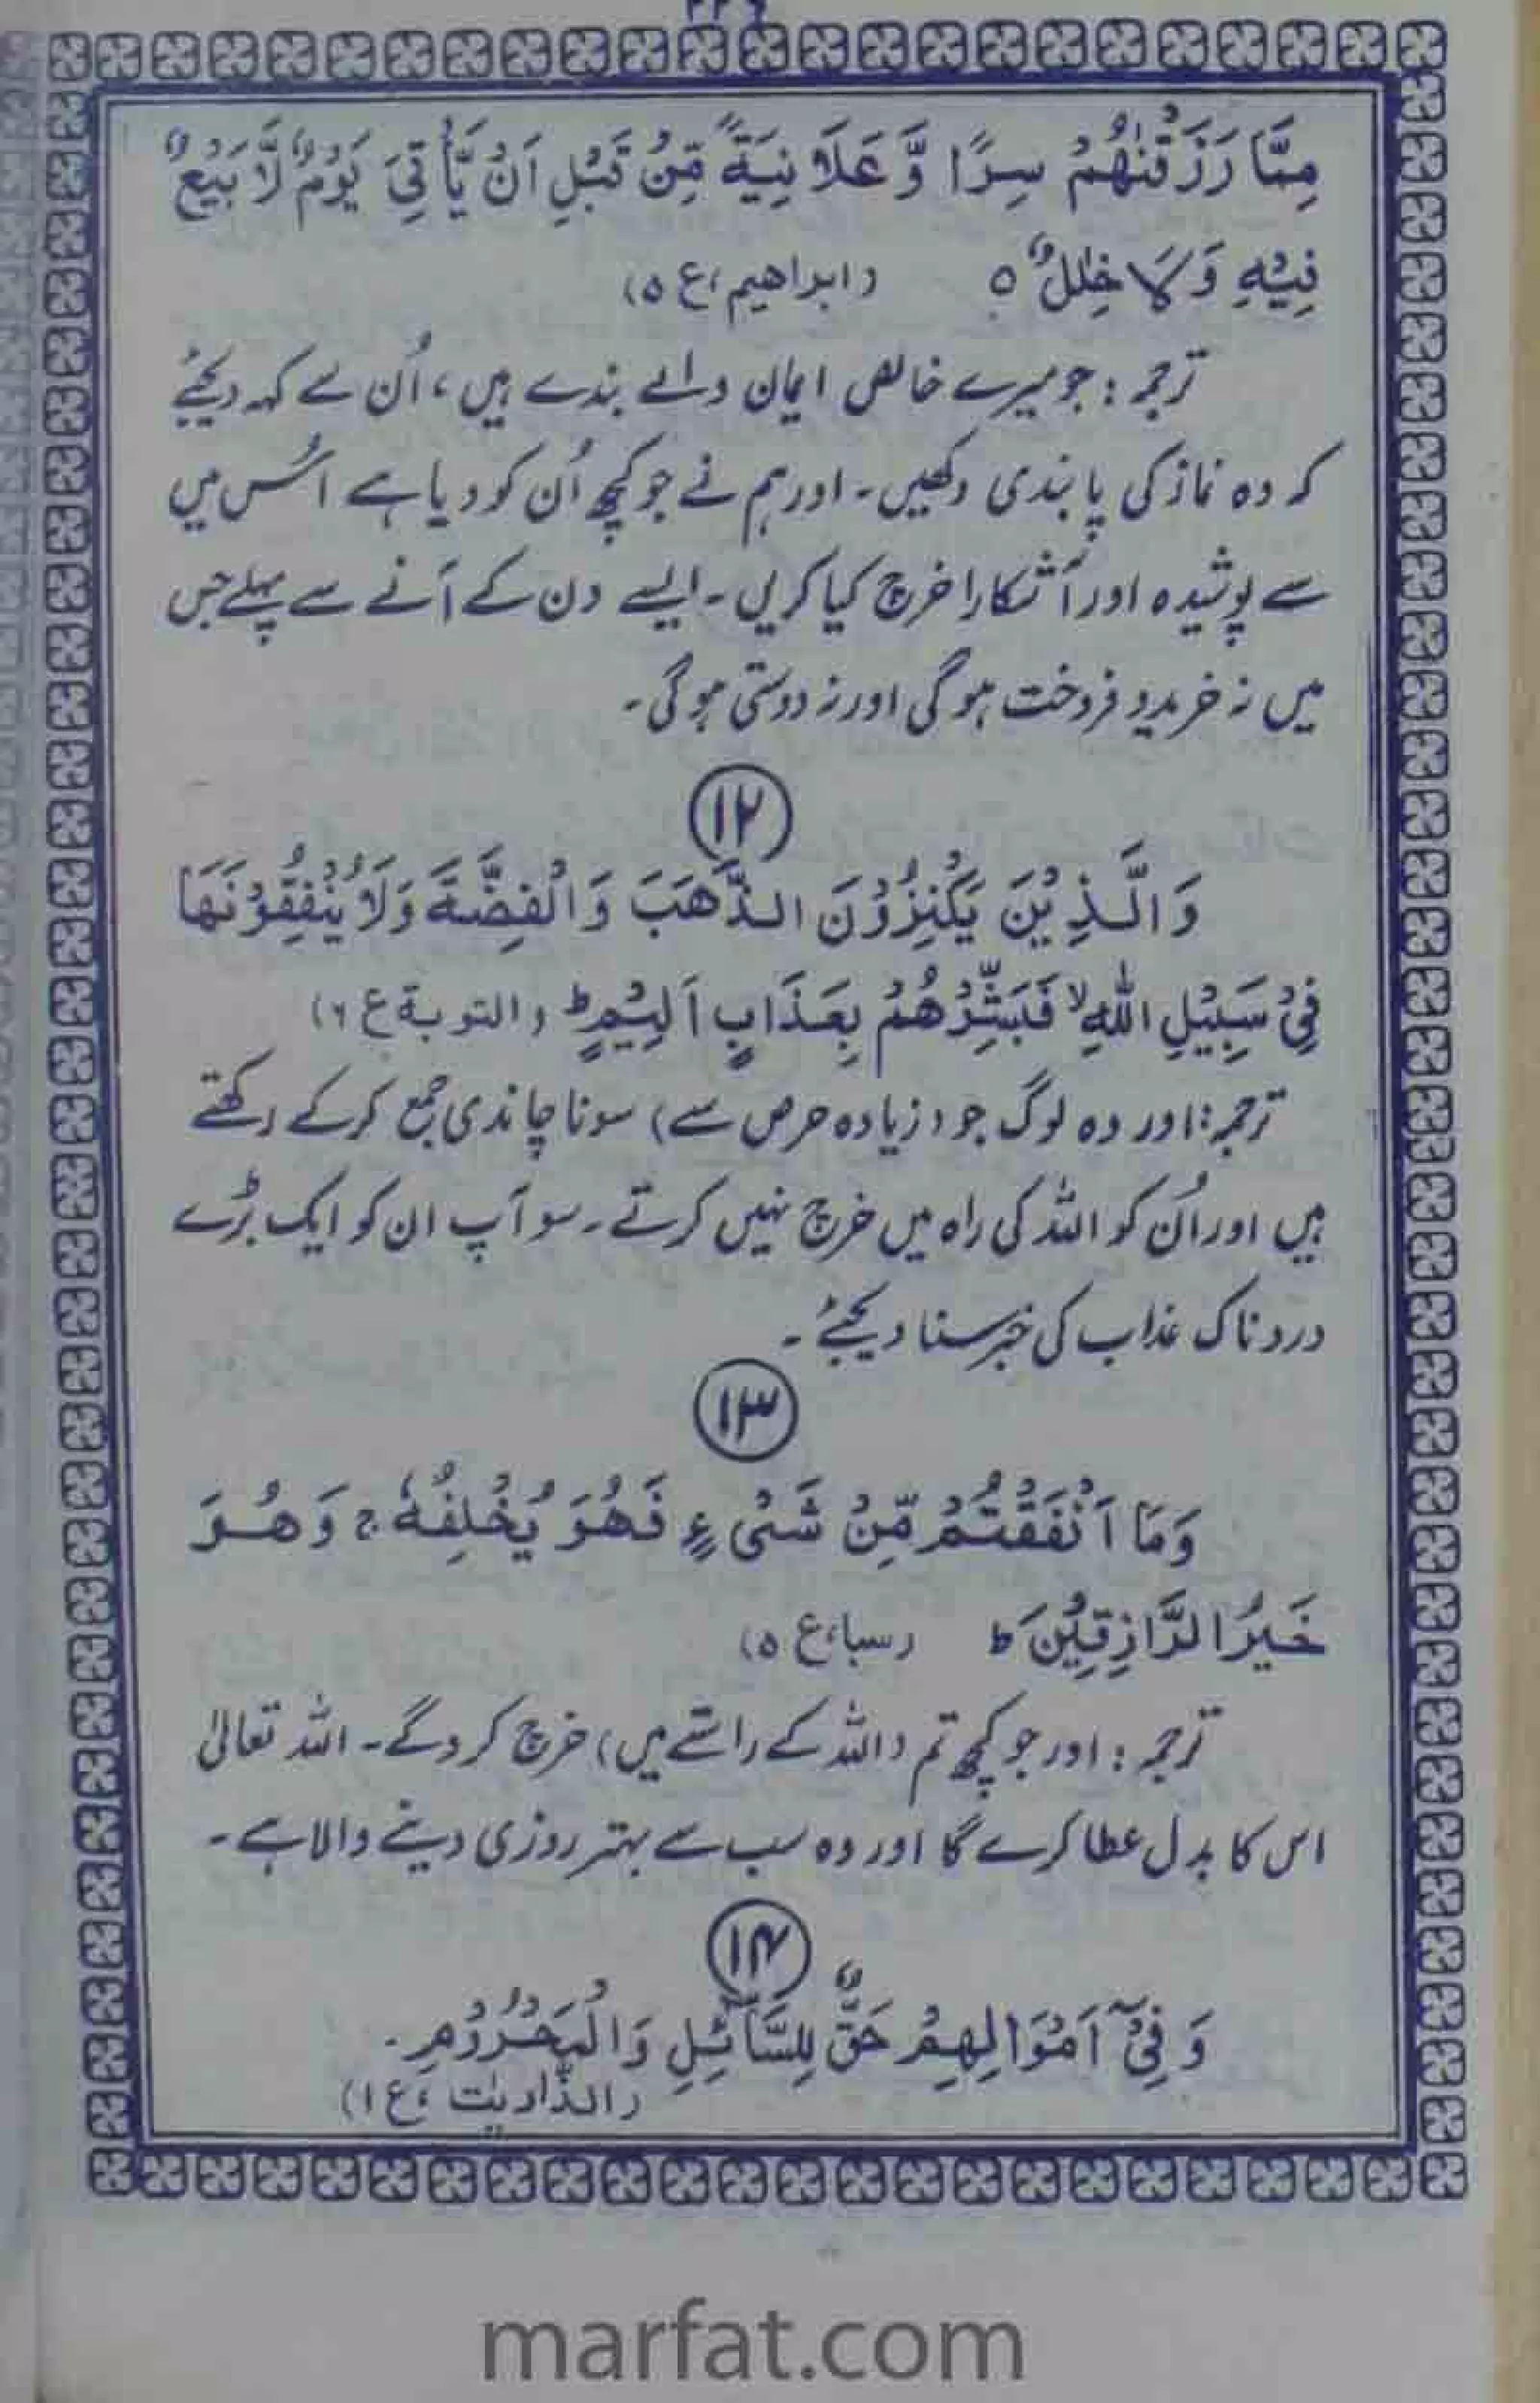 مِمَّا رَزَقْنٰهُمْ سِرًّا وَّعَلَانِيَةً مِّنْ قَبْلِ اَنْ يَّأْتِيَ يَوْمٌ لَّا بَيْعٌ
فِيْهِ وَلَا خِلٰلٌ ٥ (ابراهيم، ع ٥)
ترجمہ : جو میرے خالص ایمان والے بندے ہیں، اُن سے کہہ دیجئے
کہ وہ نماز کی پابندی رکھیں۔ اور ہم نے جو کچھ اُن کو دیا ہے اُس میں
سے پوشیدہ اور آشکارا خرچ کیا کریں۔ ایسے دن کے آنے سے پہلے جس
میں نہ خرید و فروخت ہو گی اور نہ دوستی ہو گی۔
۱۲
وَالَّذِيْنَ يَكْنِزُوْنَ الذَّهَبَ وَالْفِضَّةَ وَلَا يُنْفِقُوْنَهَا
فِيْ سَبِيْلِ اللّٰهِ ۙ فَبَشِّرْهُمْ بِعَذَابٍ اَلِيْمٍ ط (التوبة ع ٦)
ترجمہ : اور وہ لوگ جو (زیادہ حرص سے) سونا چاندی جمع کر کے رکھتے
ہیں اور اُن کو اللہ کی راہ میں خرچ نہیں کرتے۔ سو آپ ان کو ایک بڑے
دردناک عذاب کی خبر سنا دیجئے۔
۱۳
وَمَا اَنْفَقْتُمْ مِّنْ شَىْءٍ فَهُوَ يُخْلِفُهٗ ج وَهُوَ
خَيْرُ الرَّازِقِيْنَ ط (سبا، ع ٥)
ترجمہ : اور جو کچھ تم (اللہ کے راستے میں) خرچ کرو گے۔ اللہ تعالیٰ
اس کا بدل عطا کرے گا اور وہ سب سے بہتر روزی دینے والا ہے۔
۱۴
وَفِيْٓ اَمْوَالِهِمْ حَقٌّ لِّلسَّآئِلِ وَالْمَحْرُوْمِ۔
(الذّاريٰت، ع ١)
marfat.com